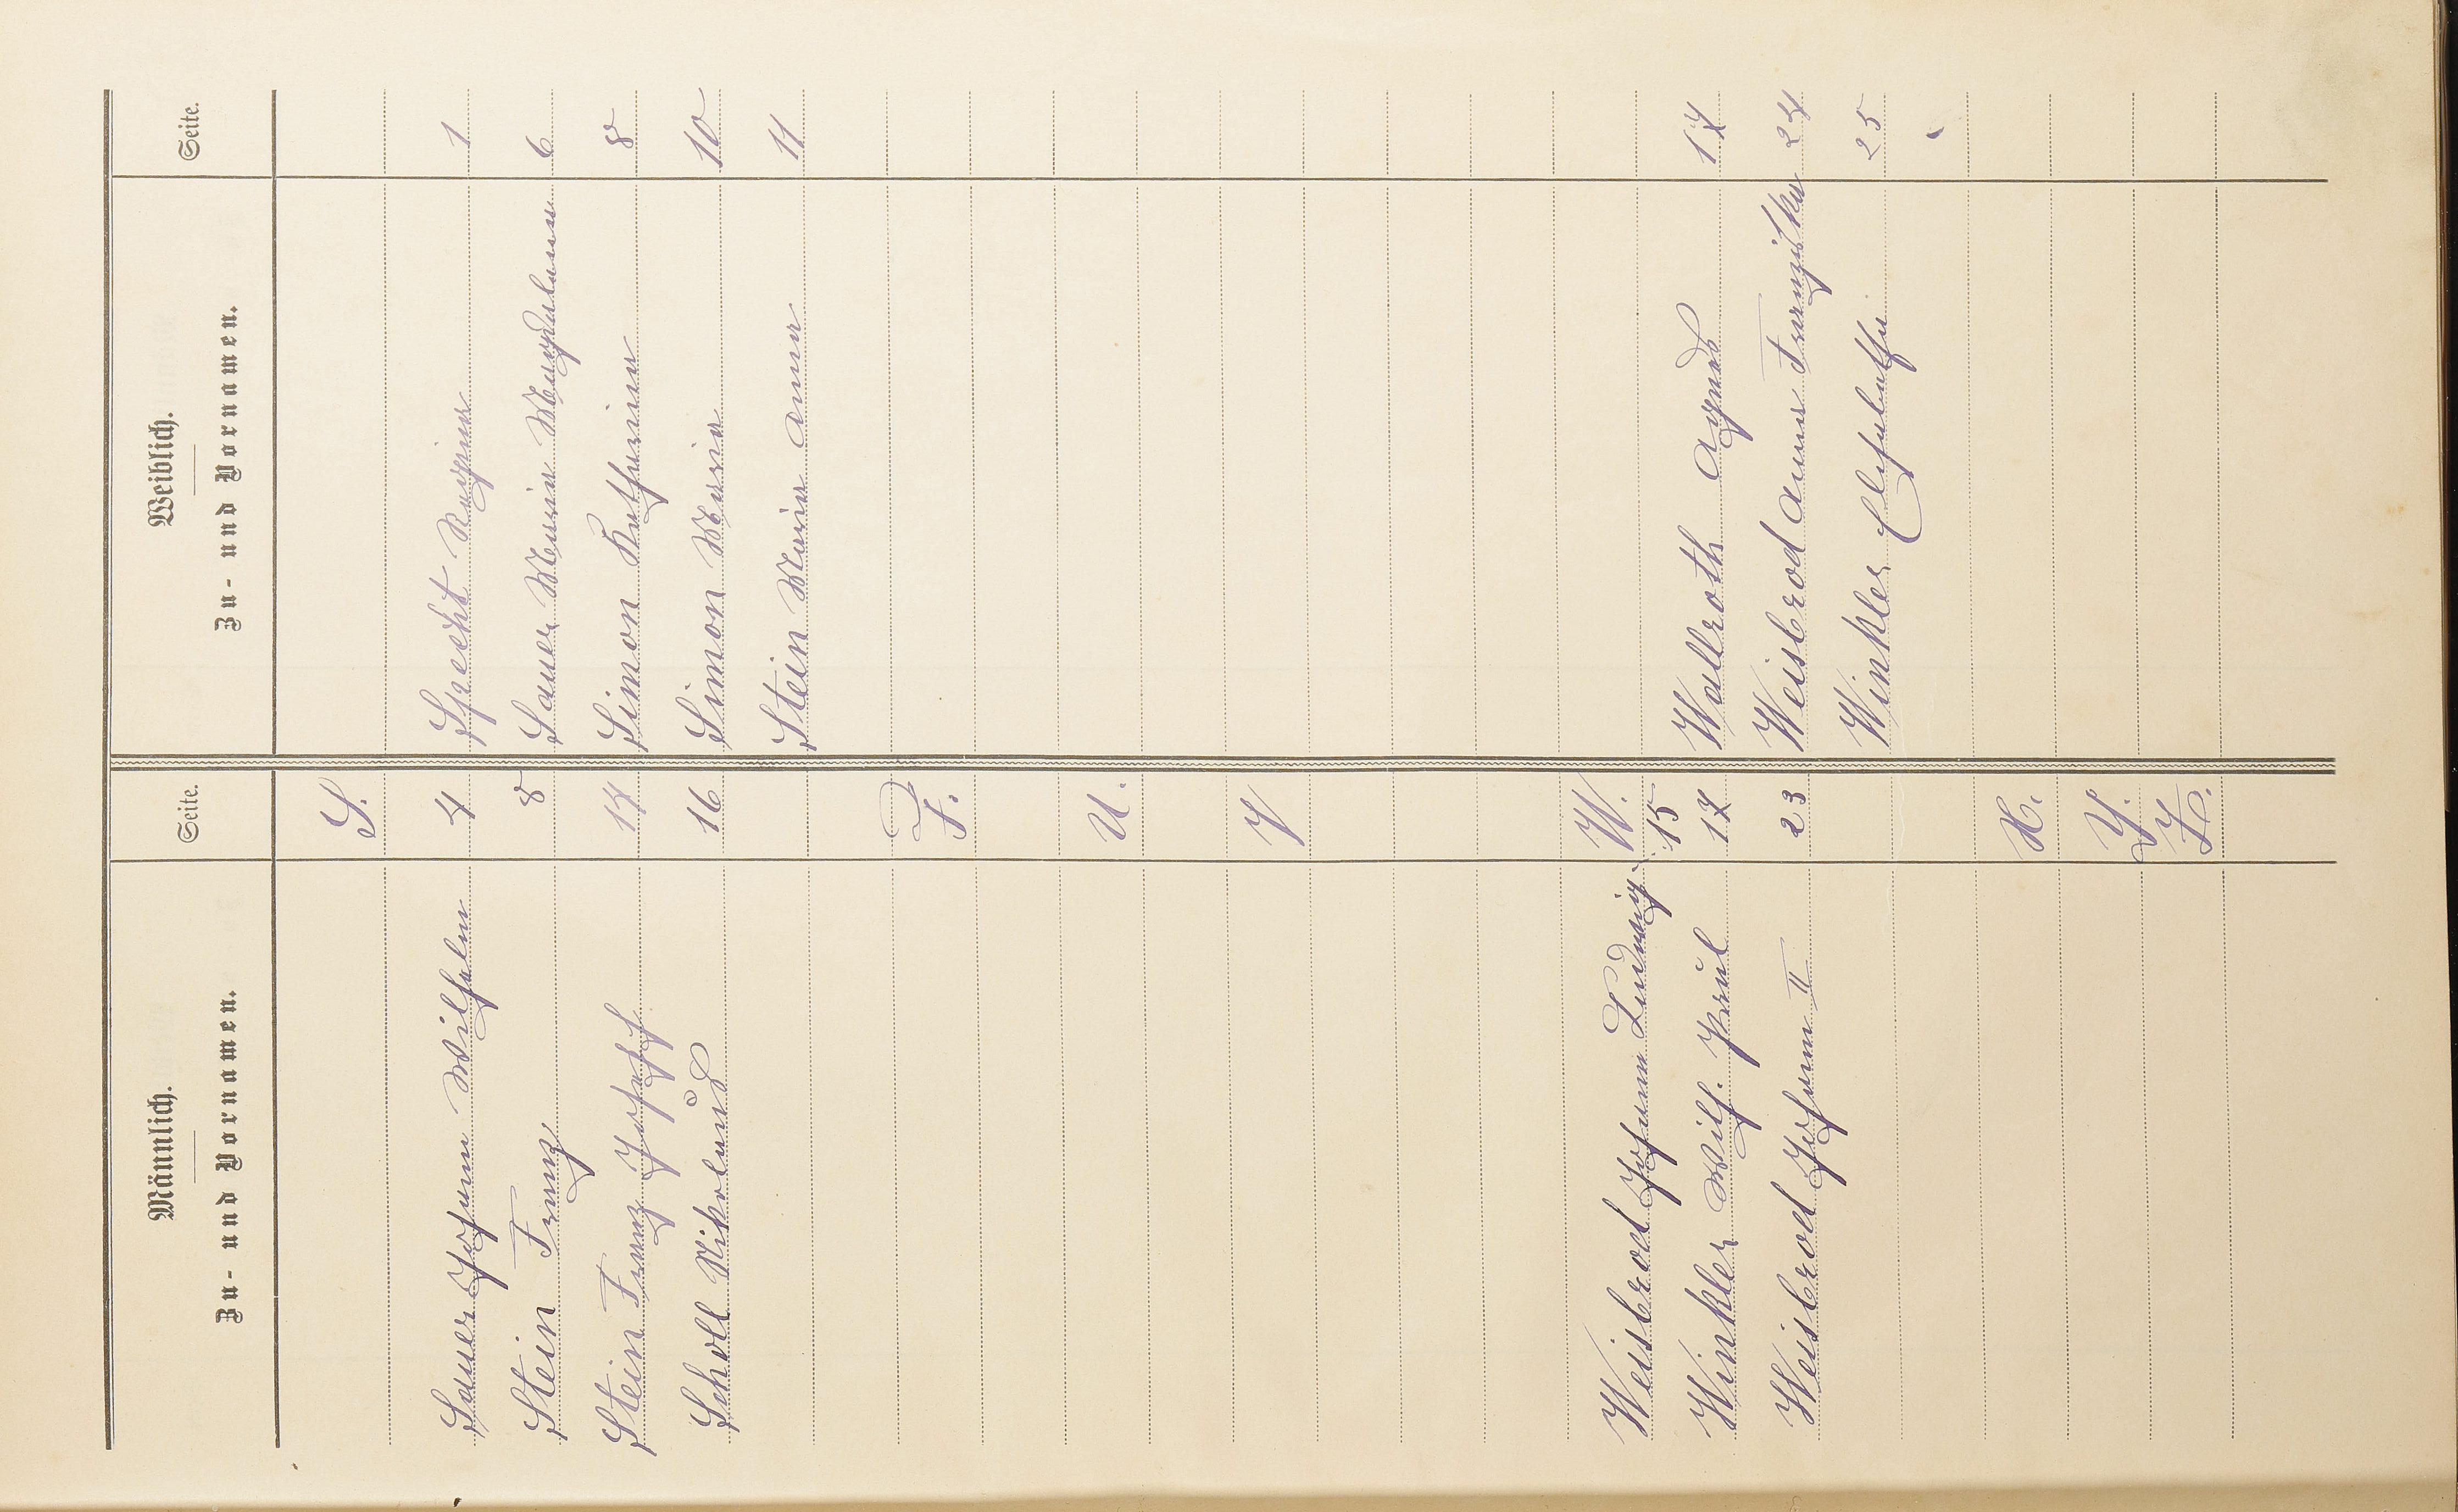 Männlich. Weiblich.
Zu- und Vornamen. Seite. Zu- und Vornamen. Seite.
S.
Sauer Johann Wilhelm 4 Specht Regina 1
Stein Franz 8 Sauer Maria Magdalena 6
Stein Franz Joseph 14 Simon Katharina 8
Scholl Nikolaus 16 Simon Maria 10
Stein Maria Anna 11
T.
U.
V
W.
Weisbrod Johann Ludwig. 15 Wallroth Agnes 17
Winkler Wilh. Paul 17 Weisbrod Anna Franziska 24
Weisbrod Johann II 23 Winkler Elisabetha 25
X.
Y.
Z.